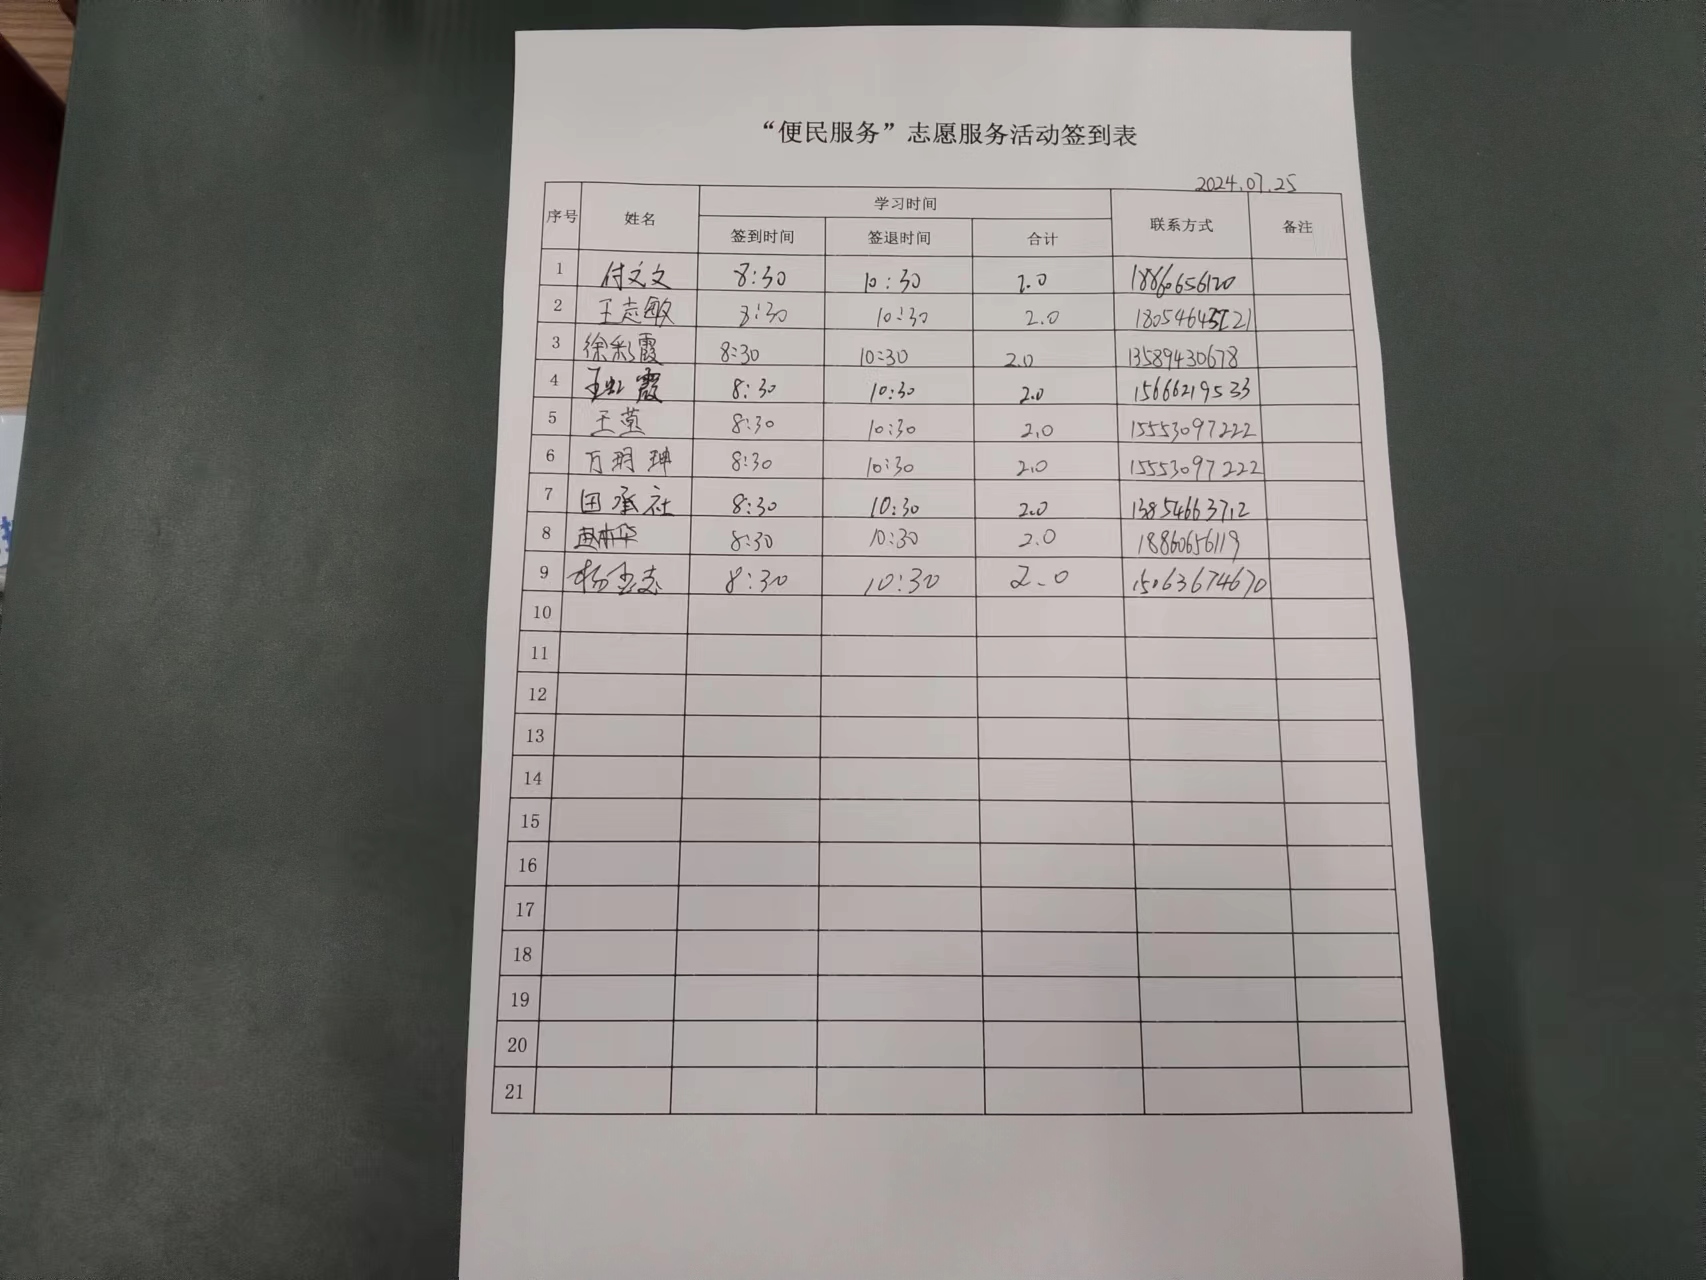 “便民服务”志愿服务活动签到表
2024.07.25
序号 姓名 学习时间 联系方式 备注
签到时间 签退时间 合计
1 付文文 8:30 10:30 2.0 18860656120
2 王志敏 8:30 10:30 2.0
3 徐彩霞 8:30 10:30 2.0 13589430678
4 王虹霞 8:30 10:30 2.0 15666219533
5 王燕 8:30 10:30 2.0 15553097222
6 万玥珅 8:30 10:30 2.0 15553097222
7 田承社 8:30 10:30 2.0 13854663712
8 8:30 10:30 2.0 18860656119
9 8:30 10:30 2.0 15063674670
10
11
12
13
14
15
16
17
18
19
20
21